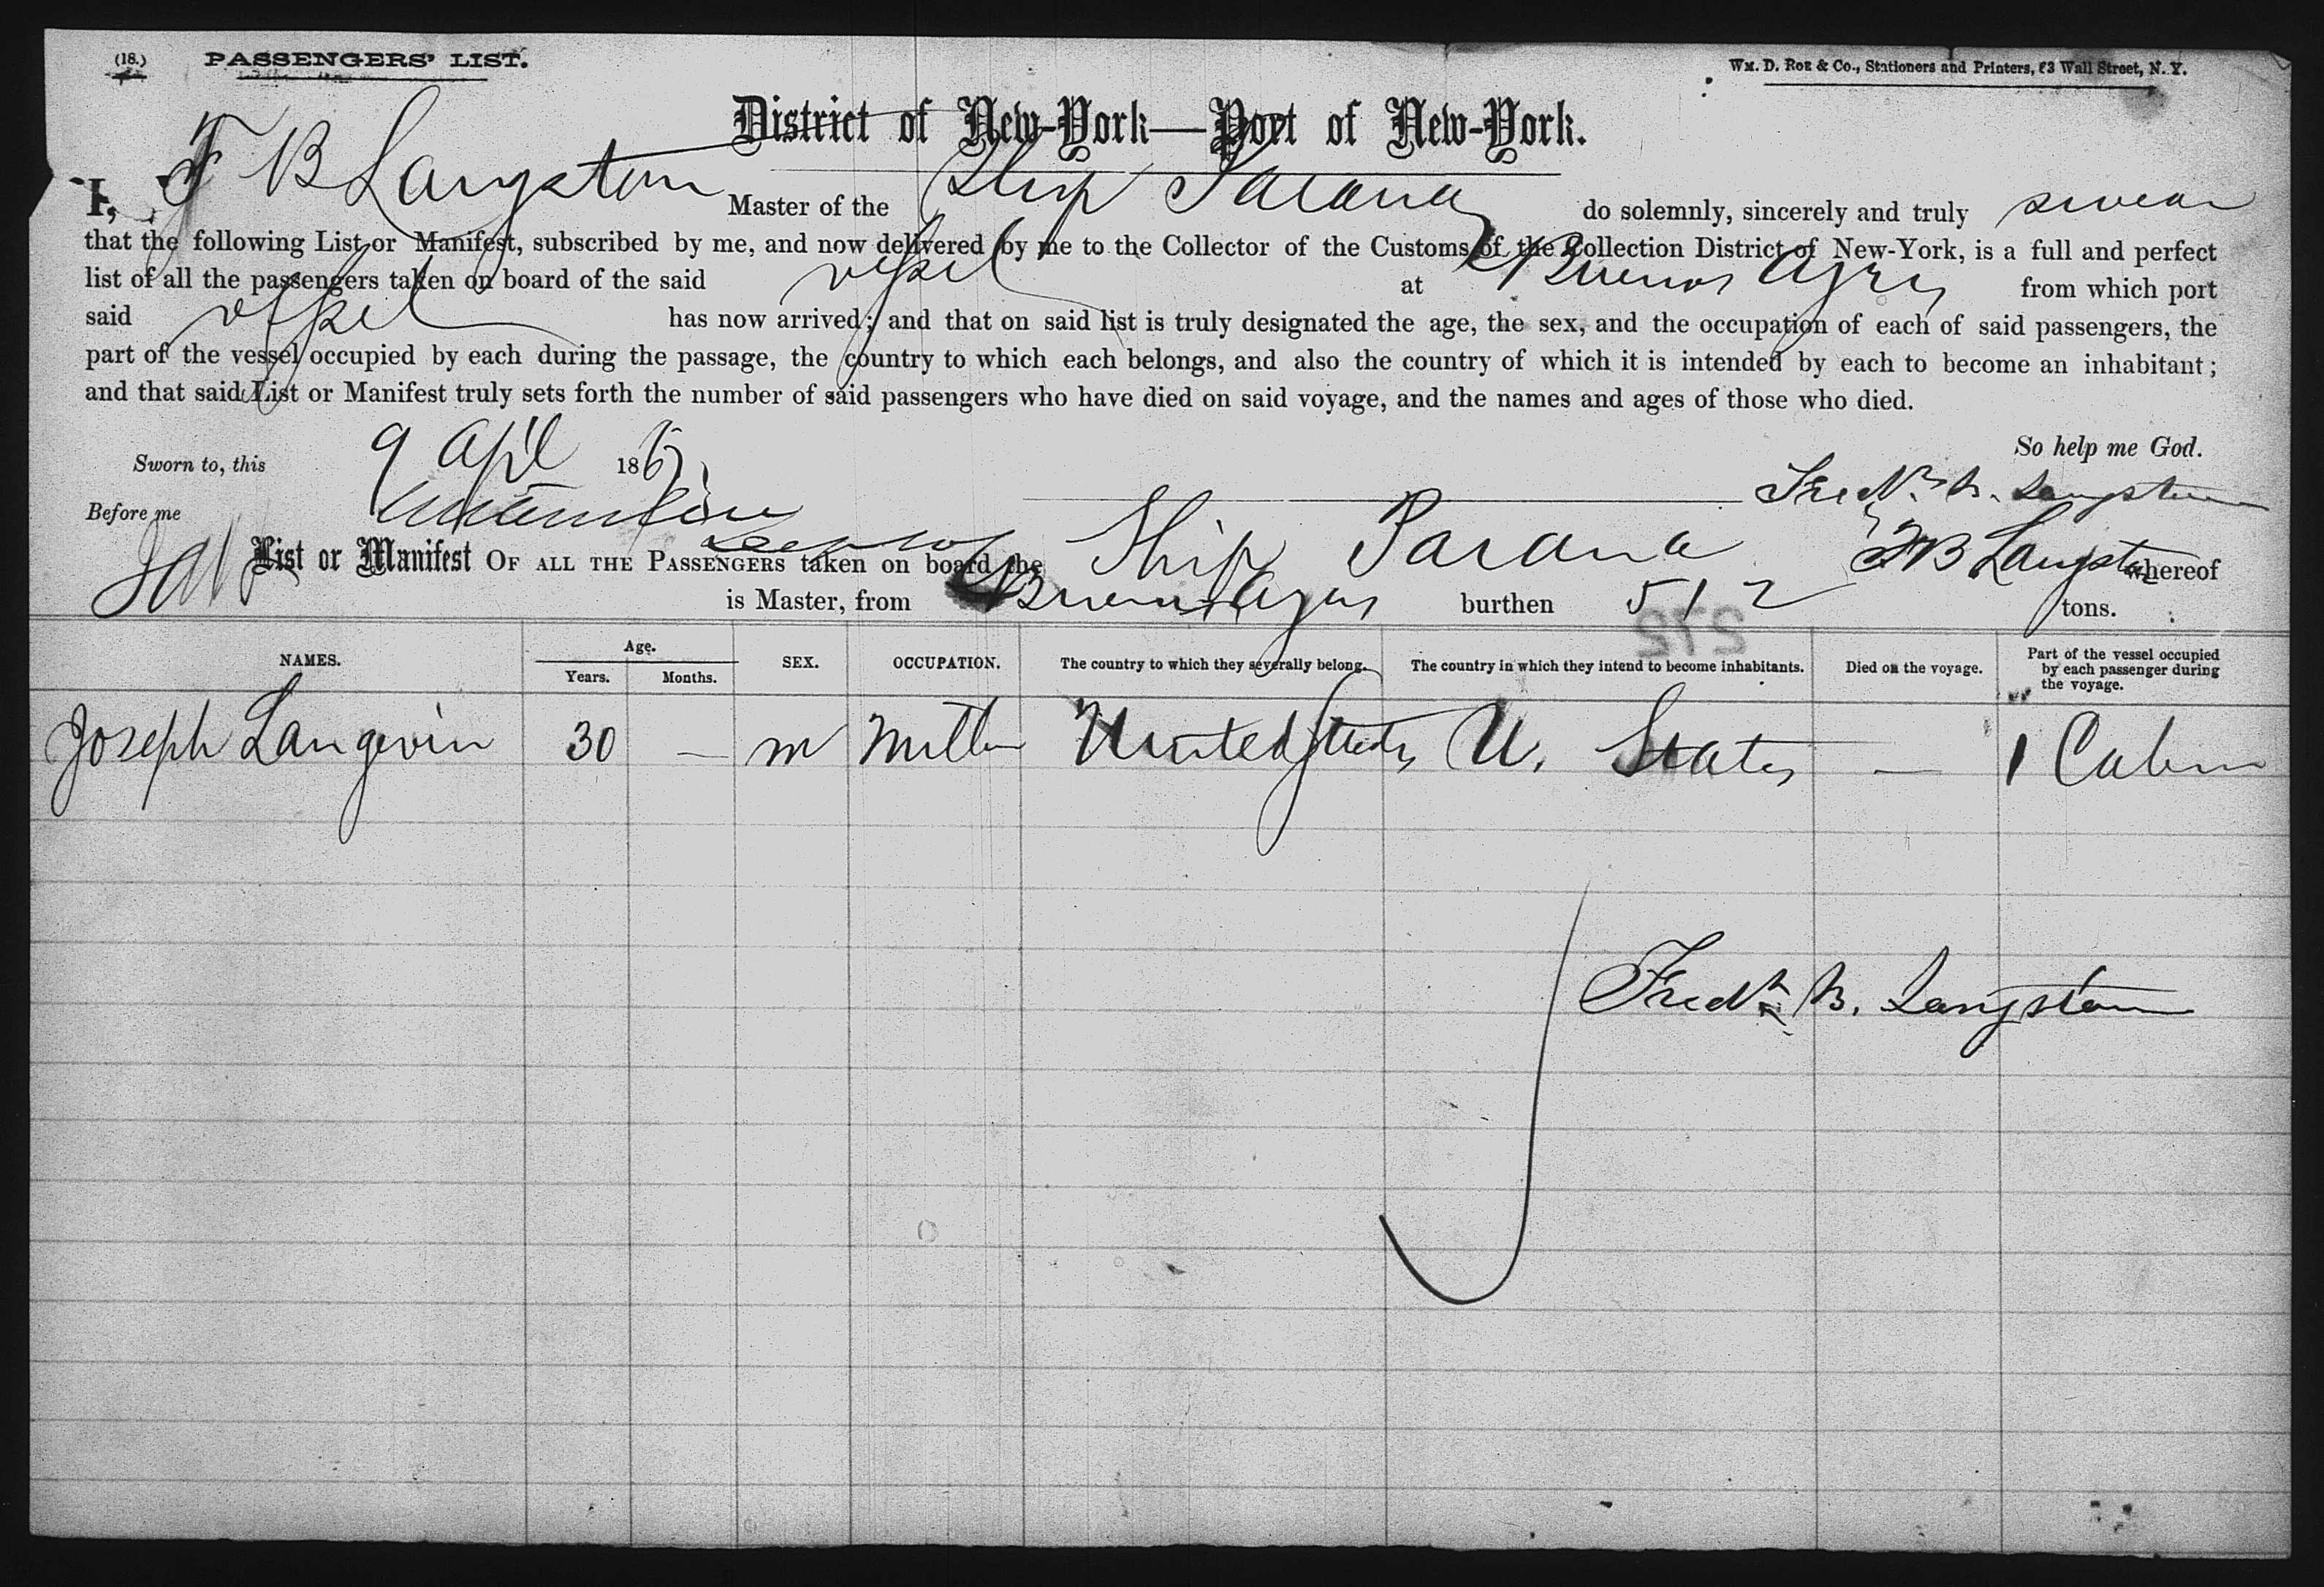 (18.) PASSENGERS' LIST.
Wm. D. Roe & Co., Stationers and Printers, 63 Wall Street, N. Y.
District of New-York—Port of New-York.
I, F B Langston Master of the Ship Parana do solemnly, sincerely and truly swear
that the following List or Manifest, subscribed by me, and now delivered by me to the Collector of the Customs of the Collection District of New-York, is a full and perfect
list of all the passengers taken on board of the said vessel at Buenos Ayres from which port
said vessel has now arrived; and that on said list is truly designated the age, the sex, and the occupation of each of said passengers, the
part of the vessel occupied by each during the passage, the country to which each belongs, and also the country of which it is intended by each to become an inhabitant;
and that said List or Manifest truly sets forth the number of said passengers who have died on said voyage, and the names and ages of those who died.
So help me God.
Sworn to, this 9 Apl 186
Fredk. B. Langston
Before me
List or Manifest OF ALL THE PASSENGERS taken on board the Ship Parana F B Langston whereof
is Master, from Buenos Ayres burthen 512 tons.
512
NAMES. Age. Years. Months. SEX. OCCUPATION. The country to which they severally belong. The country in which they intend to become inhabitants. Died on the voyage. Part of the vessel occupied by each passenger during the voyage.
Joseph Langevin 30 — m United States U. States — 1 Cabin
Fredk B. Langston